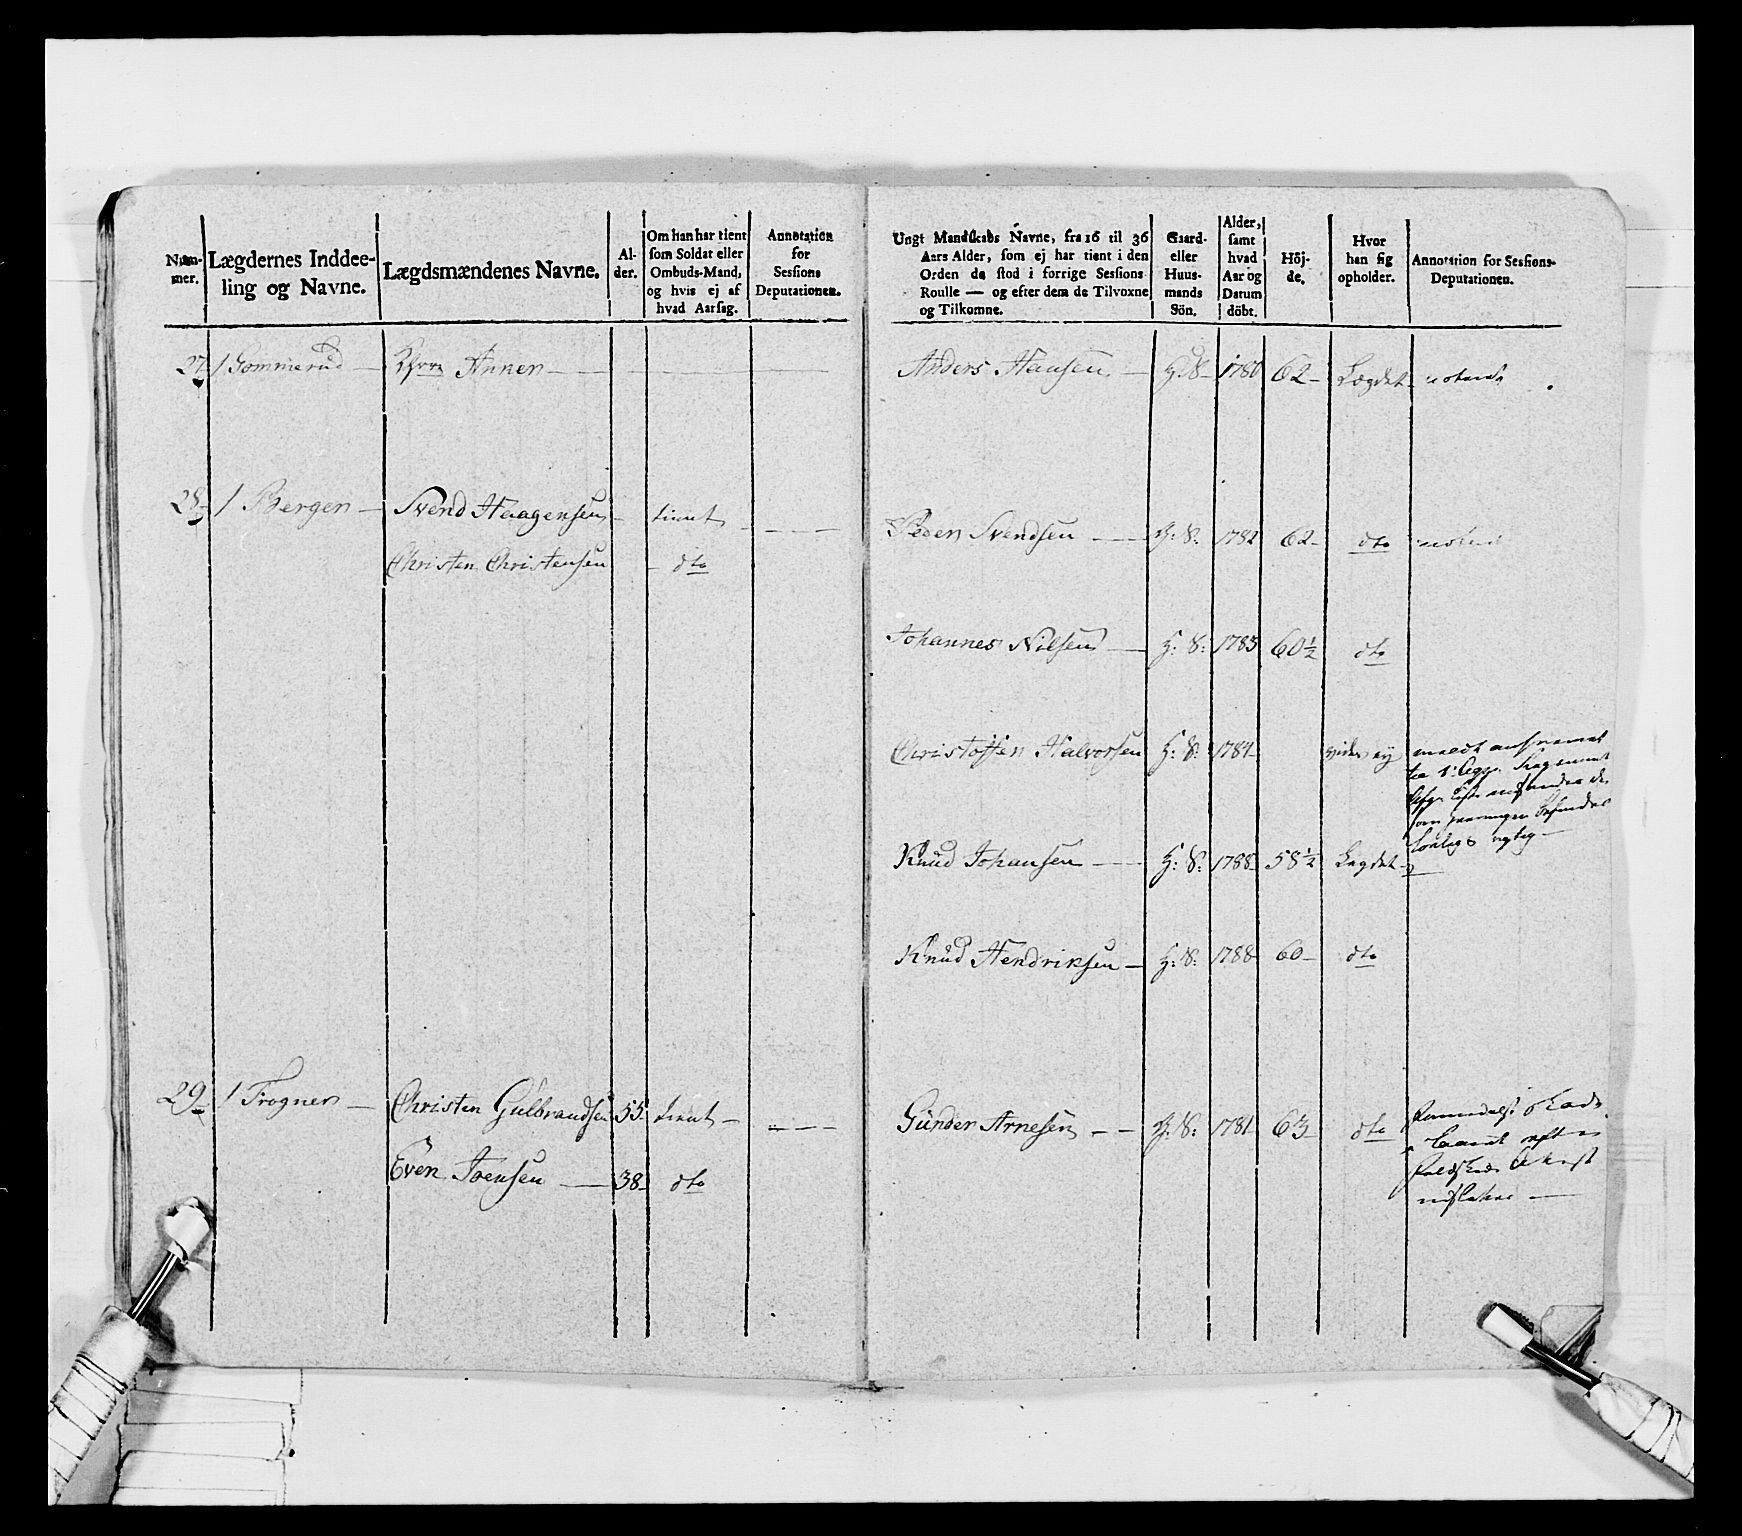 Num-
mer.
Lægdernes Inddee-
ling og Navne.
Lægdsmændenes Navne.
Al-
der.
Om han har tient
som Soldat eller
Ombuds-Mand,
og hvis ej af
hvad Aarsag.
Annotation
for
Sessions
Deputationen.
27 1 Gommerud Annen
28 1 Bergen Svend Haagensen tient
Christen Christensen dto
29 1 Frogner Christen Gulbrandsen 55 tient
Even Ivensen 38 dto
Ungt Mandskabs Navne, fra 16 til 36
Aars Alder, som ej har tient i den
Orden de stod i forrige Sessions
Roulle — og efter dem de Tilvoxne
og Tilkomne.
Gaard-
eller
Huus-
mands
Sön.
Alder,
samt
hvad
Aar og
Datum
döbt.
Höj-
de.
Hvor
han sig
opholder.
Annotation for Sessions-
Deputationen.
Anders Hansen 1780 62 Lægdet
Peder Svendsen G: S: 1782 62 dto
Johannes Nilsen H: S: 1785 60½ dto
Christoffer Halvorsen H: S: 1784
Knud Johansen H: S: 1788 58½ Lægdet
Knud Hendriksen H: S: 1788 60 dto
Gunder Arnesen G: S: 1781 63 dto